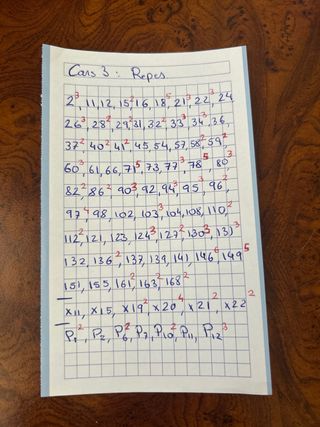 Cars 3: Repes
2³, 11, 12, 15², 16, 18⁵, 21³, 22³, 24
26³, 28², 29², 31, 32², 33³, 34³, 36,
37², 40², 41², 45, 54, 57, 58², 59²,
60³, 61, 66, 71⁵, 73, 77³, 78⁵, 80³,
82², 86², 90³, 92, 94³, 95³, 96²,
97⁴, 98, 102, 103³, 104, 108, 110²,
112², 121, 123, 124³, 127², 130³, 131³,
132, 136², 137, 139, 141, 146⁶, 149⁵
151, 155, 161², 163², 168²
X11, X15, X19², X20⁴, X21², X22²
P1², P2, P6², P7, P10², P11, P12³